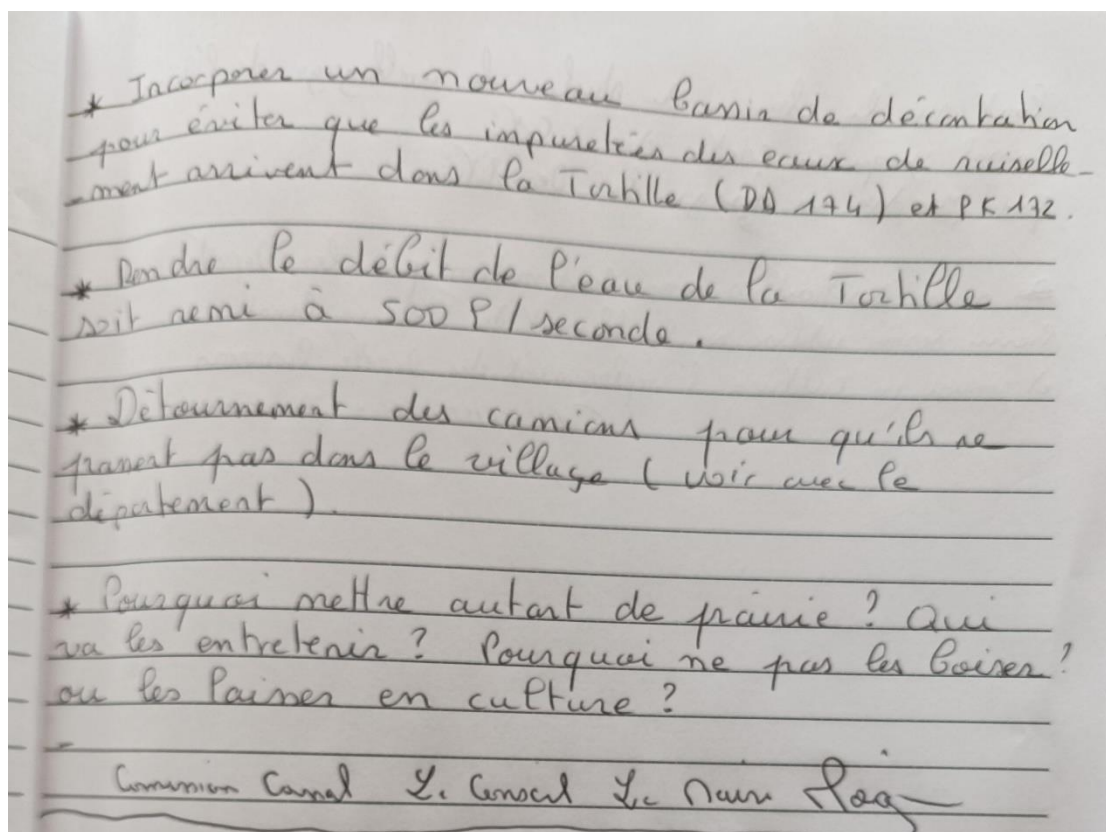 * Incorporer un nouveau bassin de décantation
pour éviter que les impuretées des eaux de ruiselle-
-ment arrivent dans la Tortille (DD 174) et PK 172.
* Rendre le débit de l'eau de la Tortille
soit remi à 500 l / seconde.
* Détournement des camions pour qu'ils ne
passent pas dans le village (voir avec le
département).
* Pourquoi mettre autant de prairie ? Qui
va les entretenir ? Pourquoi ne pas les boiser ?
ou les laisser en culture ?
Commission Canal Le Conseil Le Maire